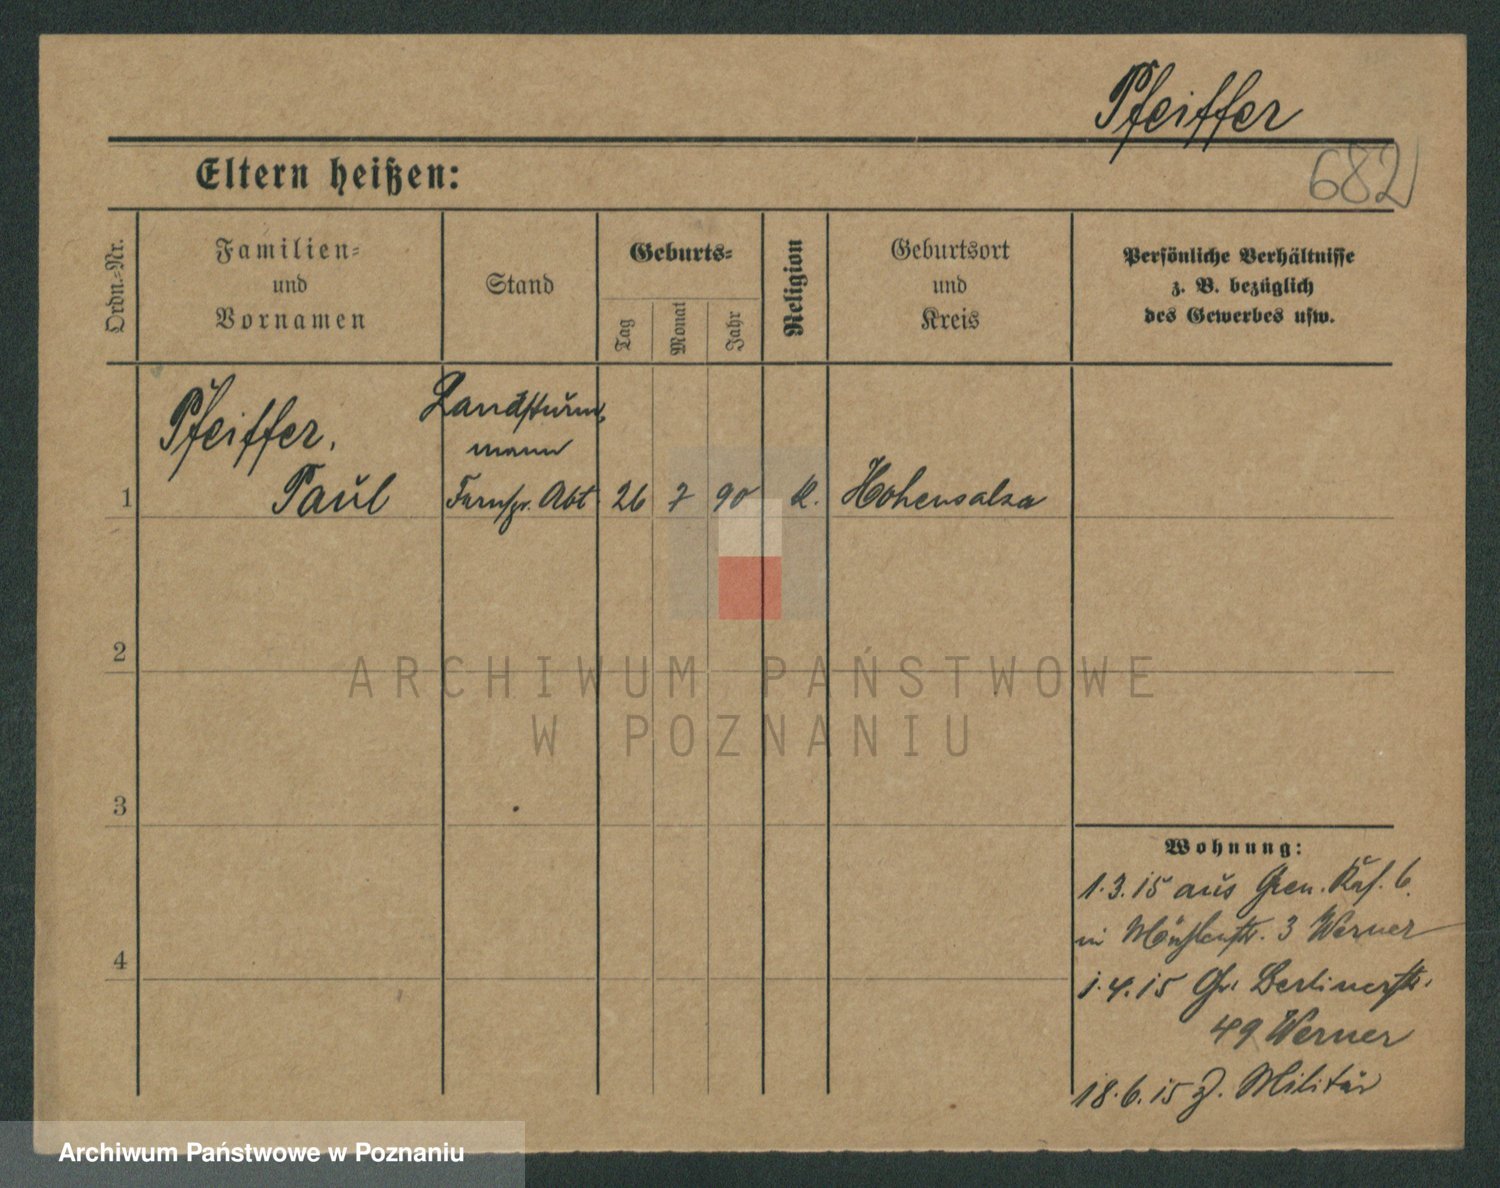 Pfeiffer
682
Eltern heißen:
Ordn.=Nr.
Familien=
und
Vornamen
Stand
Geburts=
Tag
Monat
Jahr
Religion
Geburtsort
und
Kreis
Persönliche Verhältnisse
z. B. bezüglich
des Gewerbes usw.
Pfeiffer,
Paul
Landsturm,
mann
Fernspr. Abt
1
26 7 90
K.
Hohensalza
2
3
4
Wohnung:
1.3.15 aus Gren. Kas. 6.
in 3 Werner
1.4.15 Gr. Berlinerstr.
49 Werner
18.6.15 z. Militär
ARCHIWUM PAŃSTWOWE
W POZNANIU
Archiwum Państwowe w Poznaniu